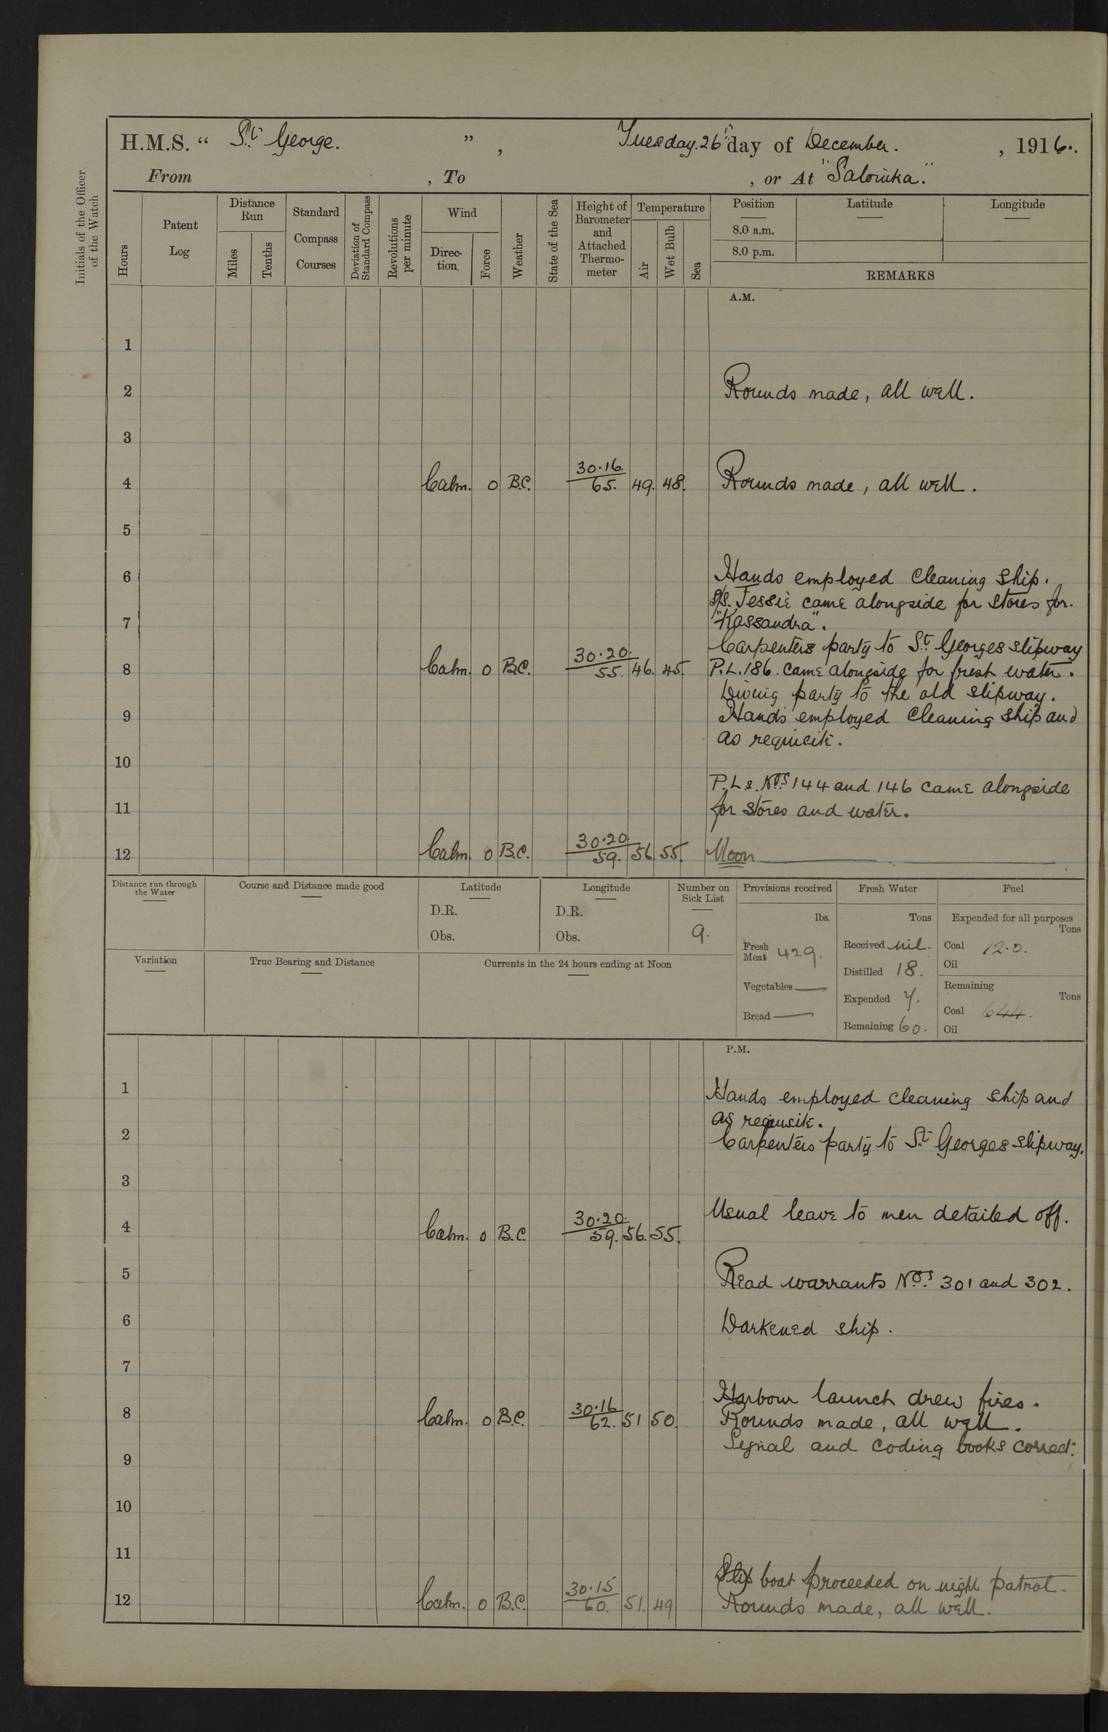 H.M.S. “ St George. ”, Tuesday. 26th day of December. , 1916.
From , To , or At "Salonika."
Initials of the Officer of the Watch
Hours
Patent Log
Distance Run
Miles
Tenths
Standard Compass Courses
Deviation of Standard Compass
Revolutions per minute
Wind
Direction.
Force
Weather
State of the Sea
Height of Barometer and Attached Thermometer
Temperature
Air
Wet Bulb
Sea
Position
8.0 a.m.
8.0 p.m.
Latitude
Longitude
REMARKS
A.M.
1
2 Rounds made, all well.
3
4 Calm. 0 B.C. 30·16 / 65. 49. 48. Rounds made, all well.
5
6 Hands employed cleaning ship.
S/S. Jessie came alongside for stores for.
7 "Kassandra".
Carpenters party to St Georges slipway
8 Calm. 0 B.C. 30·20 / 55. 46. 45. P.L. 186. came alongside for fresh water.
Diving party to the old slipway.
9 Hands employed cleaning ship and
as requisite.
10
P.Ls. Nos 144 and 146 came alongside
11 for stores and water.
12 Calm. 0 B.C. 30·20 / 59. 56. 55. Noon
Distance run through the Water
Course and Distance made good
Latitude
D.R.
Obs.
Longitude
D.R.
Obs.
Number on Sick List
9.
Provisions received
lbs.
Fresh Meat 429.
Vegetables —
Bread —
Fresh Water
Tons
Received nil.
Distilled 18.
Expended 7.
Remaining 60.
Fuel
Expended for all purposes
Tons
Coal 12.0.
Oil
Remaining
Tons
Coal 644.
Oil
Variation
True Bearing and Distance
Currents in the 24 hours ending at Noon
P.M.
1 Hands employed cleaning ship and
as requisite.
2 Carpenters party to St Georges slipway.
3
Usual leave to men detailed off.
4 Calm. 0 B.C. 30·20 / 59. 56. 55.
5 Read warrants Nos 301 and 302.
6 Darkened ship.
7
Harbour launch drew fires.
8 Calm. 0 B.C. 30·16 / 62. 51 50. Rounds made, all well.
Signal and coding books correct.
9
10
11
boat proceeded on night patrol.
12 Calm. 0 B.C. 30·15 / 60. 51. 49 Rounds made, all well.